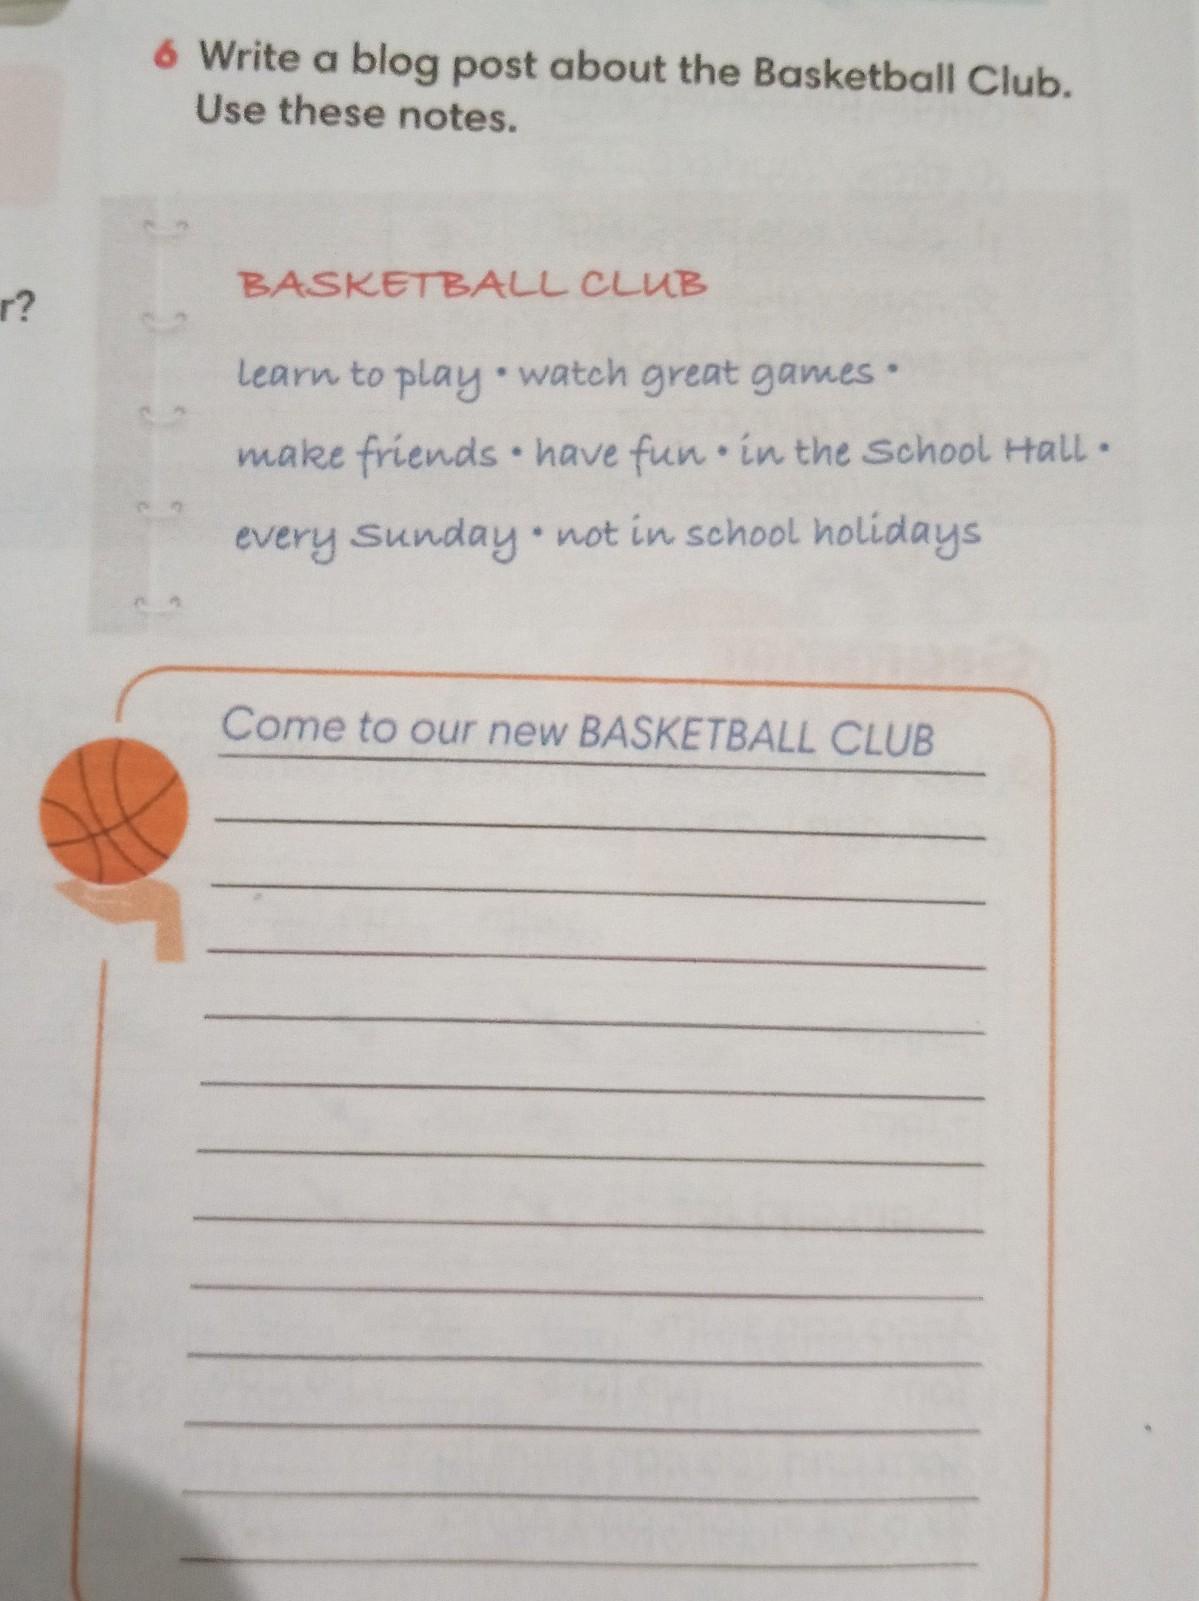 6 Write a blog post about the Basketball Club.
Use these notes.
r?
BASKETBALL CLUB
learn to play • watch great games •
make friends • have fun • in the School Hall •
every Sunday • not in school holidays
Come to our new BASKETBALL CLUB